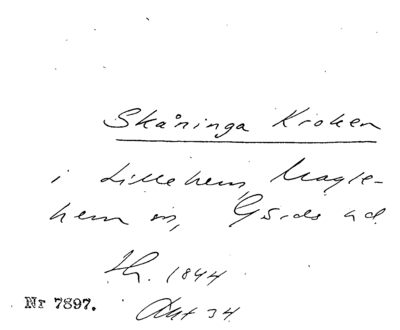 Skåninga Kroken
i Lillehem, Magle-
hem sn, Gärds hd.
1844
Nr 7897. Akt 34